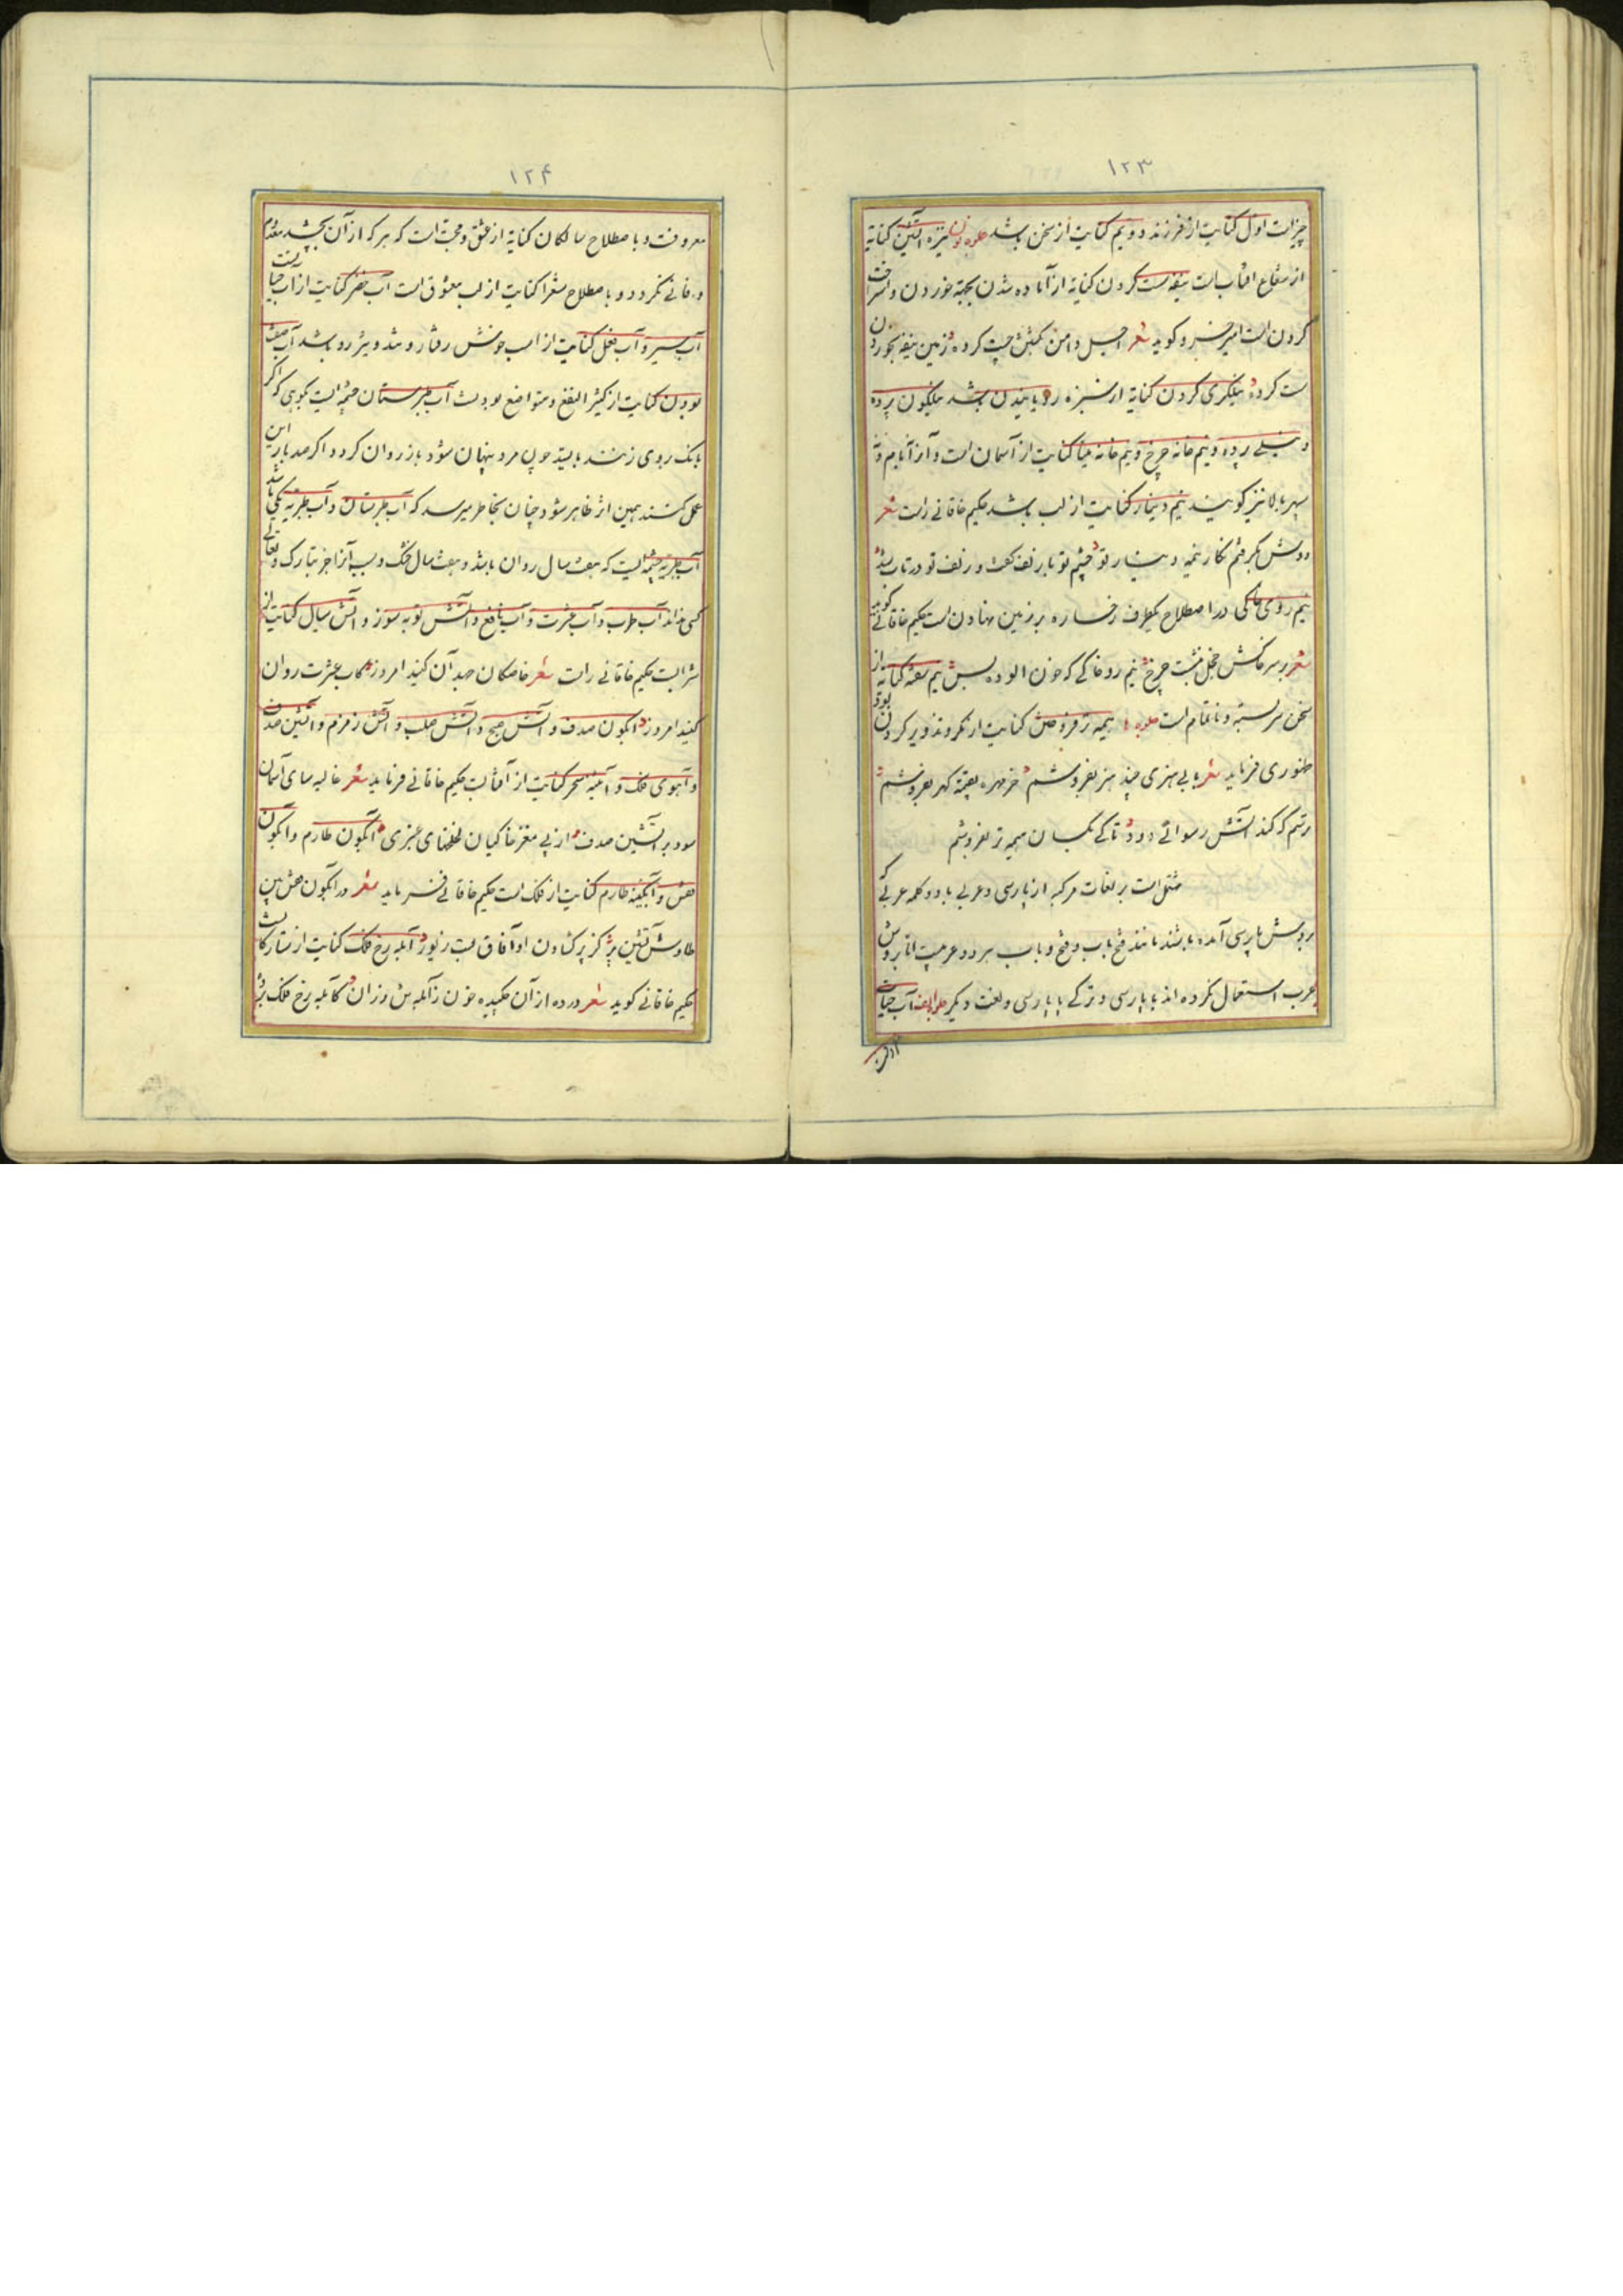 ۱۲۳
چیز است اول کنایت از فرزند دویم کنایت از سخن باشد جلوه نون نیزه آتشین کنایة
از شعاع آفتاب است نیفه سست کردن کنایة از آماده شدن بجهة خوردن و استراحت
کردن است امیر خسرو کوید شعر اجیل دامن کمینش چست کرده زمین نیفه بخوردن
ست کرده نیلگری کردن کنایة از سبزه رویانیدن باشد نیلگون پرده
و نیلی پرده و نیم خانه چرخ و نیم خانه مینا کنایت از آسمان است و آنرا
سپهر بالا نیز کویند نیم دینار کنایت از لب باشد حکیم خاقانی راست شعر
دوش بگرفتم بکاز نیمه دینار تو چشم تو با زلف گفت زلف تو در تاب شد
نیم روی خاکی در اصطلاح یکطرف رخساره بر زمین نهادن است حکیم خاقانی کوید
شعر بر سر خاکش خجل بنشست چرخ نیم رو خاکی که خون آلوده بس نیم سفته کنایة از
سخن سر بسته و ناتمام است جلوه ها هیمه تر فروختن کنایت از مکر و تزویر کردن بود
ظهوری فرماید شعر با بی هنری چند هنر بفروشم خرمهره بقیمة گهر بفروشم
ترسم که کند آتش رسوائی دود تا کی بکسان هیمه تر بفروشم
مشتمل است بر لغات مرکبه از پارسی و عربی یا دو کلمه عربی که
بروش پارسی آمده باشند مانند فتح باب و فتح و باب هر دو عربیست اما بروش
عرب استعمال نکرده اند یا پارسی و ترکی یا پارسی و لغت دیگر جلوه الف آب حیات
معروفست
۱۲۴
معروفست و باصطلاح سالکان کنایة از عشق و محبّت است که هر که از آن بچشد معدوم
و فانی نگردد و باصطلاح شعرا کنایت از لب معشوق است آب خضر کنایت از آب حیات است
آب سیر و آب فعل کنایت از اسب خوش رفتار و تند و تیز رو باشد آب صفت
بودن کنایت از کثیر النفع و متواضع بودنست آب طبرستان چشمه ایست بکوهی که اگر
بانک بروی زنند بایستد چون مرد پنهان شود باز روان کردد اگر صد بار این
عمل کنند همین اثر ظاهر شود چنان بخاطر میرسد که آب طبرستان و آب طبریه یکی باشد
آب طبریه چشمه ایست که هفت سال روان باشد و هفت سال خشک و سبب آنرا جز تبارک و تعالی
کسی نداند آب طرب و آب عشرت و آب نافع و آتش توبه سوز و آتش سیال کنایت از
شرابست حکیم خاقانی راست شعر خاصکان صید آن کنید امروز کآب عشرت روان
کنید امروز آبگون صدف و آتش صبح و آتش صلب و آتش زمزم و آتشین صدف
و آهوی فلک و آینه سحر کنایت از آفتابست حکیم خاقانی فرماید شعر غالیه سای آسمان
سود بر آتشین صدف از پی مغز خاکیان لخلخهای عنبری آبگون طارم و آبگون
قفس و آبگینه طارم کنایت از فلک است حکیم خاقانی فرماید شعر در آبگون قفس بین
طاوس آتشین پر کز پر گشادن او آفاق بست زیور آبله رخ فلک کنایت از ستارکانست
حکیم خاقانی کوید شعر درده از آن چکیده خون زآبله تن رزان کآبله رخ فلک